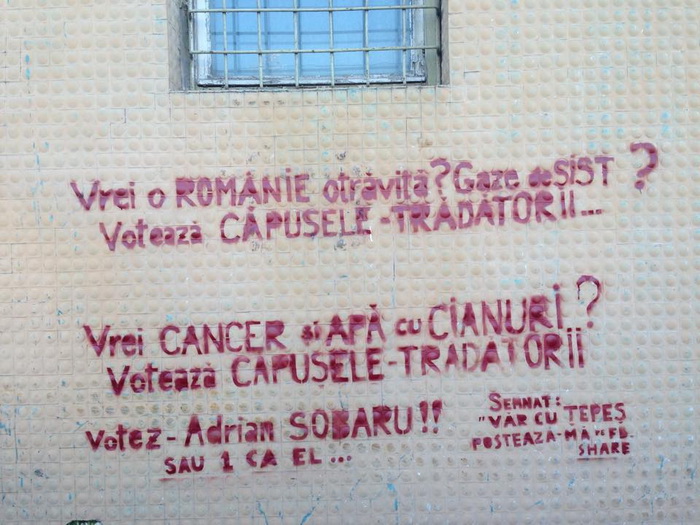 Vrei o ROMÂNIE otrăvită? Gaze de ȘIST ?
Votează CĂPUȘELE-TRĂDĂTORII...
Vrei CANCER și APĂ cu CIANURI ?
Votează CĂPUȘELE-TRADATORII
Votez-Adrian SOBARU!!
SAU 1 CA EL...
SEMNAT:
"VĂR CU ȚEPEȘ
POSTEAZĂ-MĂ" FB.
SHARE